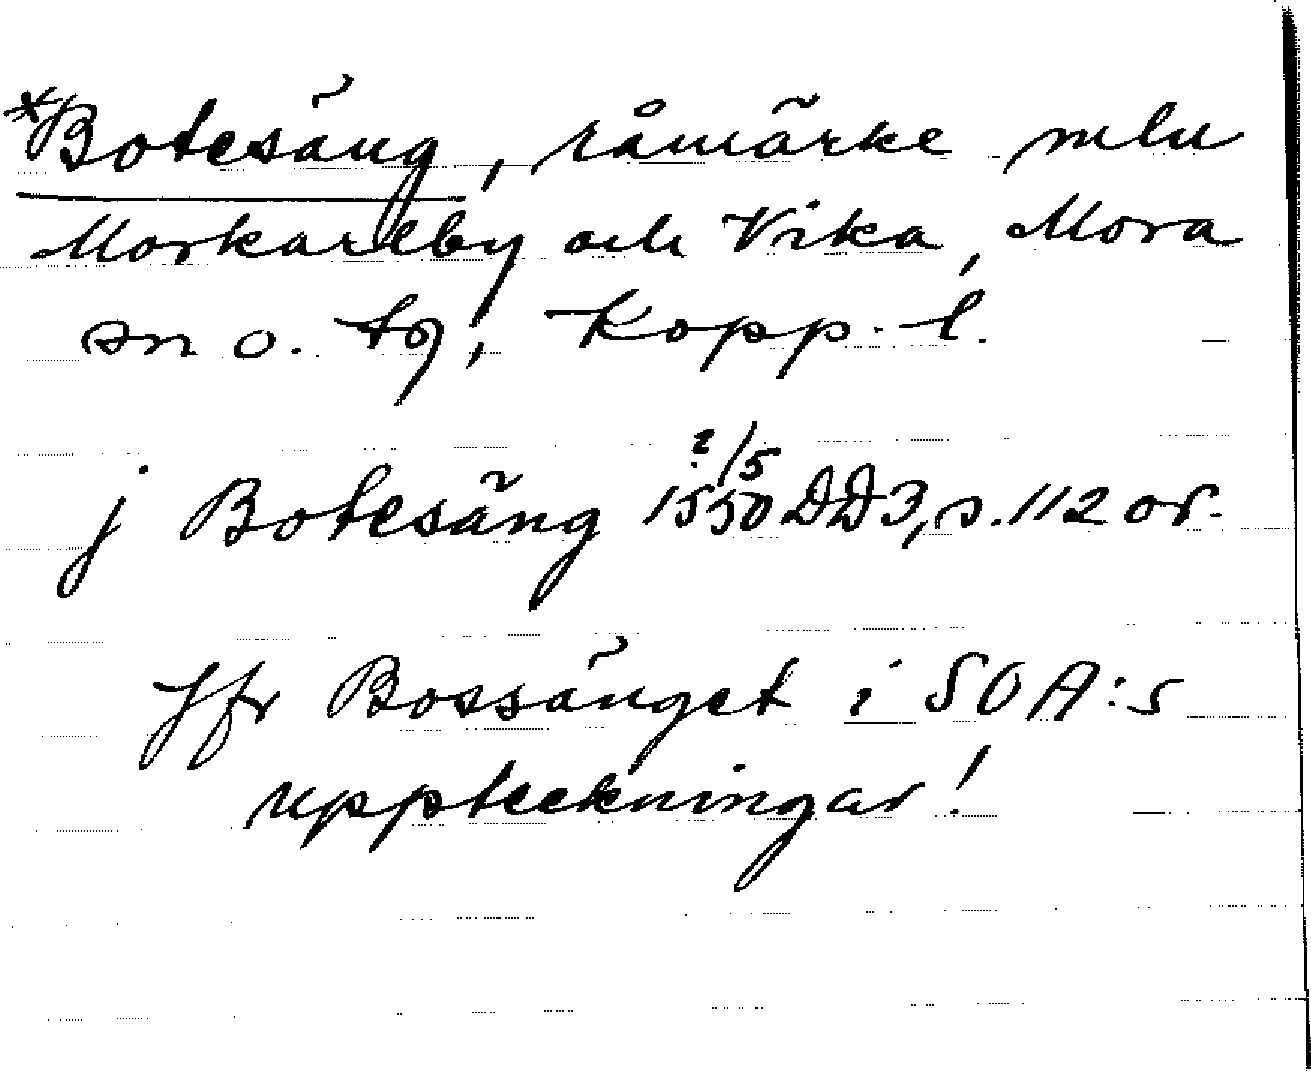 *Botesäng, råmärke mln
Morkarlby och Vika, Mora
sn o. tg, Kopp. l.
j Botesäng 2/5 1550 DD3, s. 112 or.
Jfr Bossänget i SOA:s
uppteckningar!